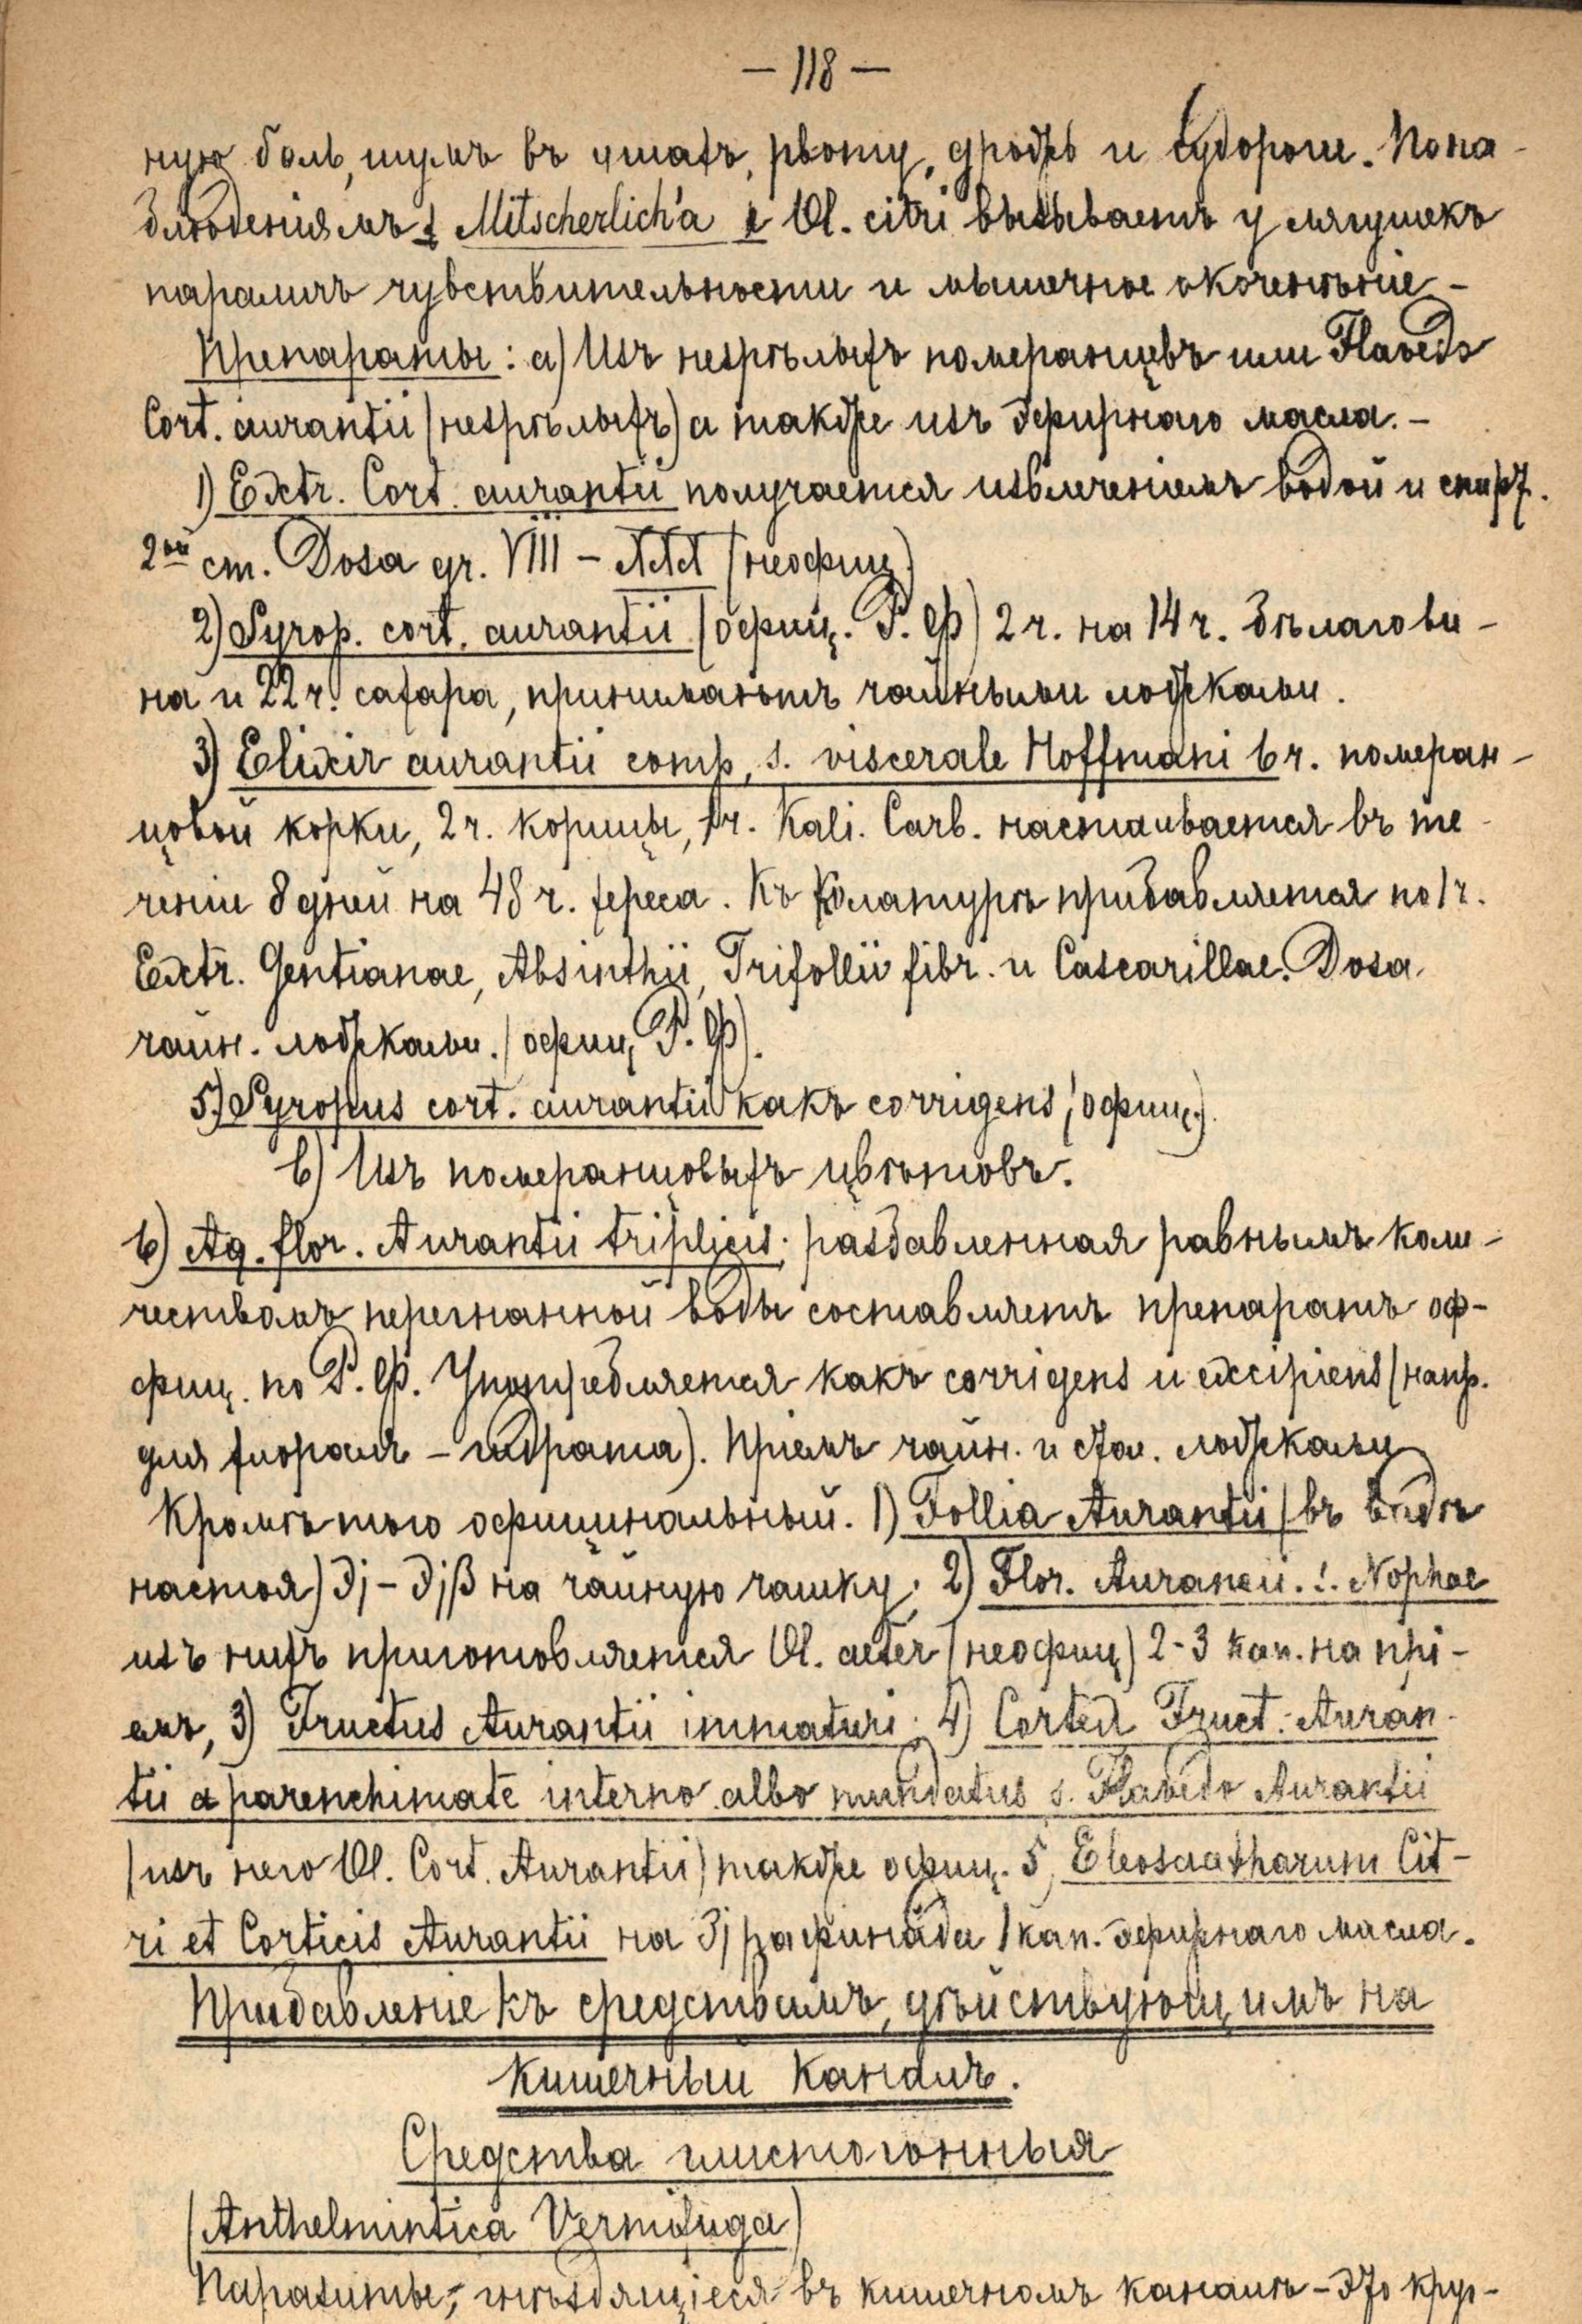 — 118 —
ную боль, шумъ въ ушахъ, рвоту, дрожь и судороги. По на-
блюденіямъ Mitscherlich'а Ol. citri вызываетъ у лягушекъ
параличъ чувствительности и мышечное окоченѣніе –
Препараты: а) Изъ незрѣлыхъ померанцевъ или Flavedo
Cort. aurantii (незрѣлыхъ) а также изъ эфирнаго масла. –
1) Extr. Cort. aurantii получается извлеченіемъ водой и спирт.
2ой ст. Dosa gr. VIII – XXX (неофиц)
2) Syrop. cort. aurantii (офиц. Р. Ф) 2 ч. на 14 ч. бѣлаго ви-
на и 22 ч. сахара, принимаютъ чайными ложками.
3) Elixir aurantii comp, s. viscerale Hoffmani 6 ч. померан-
цовой корки, 2 ч. корицы, 1 ч. Kali. Carb. настаивается въ те-
ченіи 8 дней на 48 ч. хереса. Къ колатурѣ прибавляется по 1 ч.
Extr. Gentianae, Absinthii, Trifollii fibr. и Cascarillae. Dosa
чайн. ложками. (офиц Р. Ф).
5) Syropus cort. aurantii какъ corrigens (офиц.).
b) Изъ померанцовыхъ цвѣтовъ.
6) Aq. flor. Aurantii triplicis; разбавленная равнымъ коли-
чествомъ перегнанной воды составляетъ препаратъ оф-
фиц. по Р. Ф. Употребляется какъ corrigens и excipiens (напр.
для хлоралъ – гидрата). Пріемъ чайн. и стол. ложками
Кромѣ того официнальный. 1) Follia Aurantii (въ видѣ
настоя) ℈j – ℈jβ на чайную чашку; 2) Flor. Aurancii. s. Naphae
изъ нихъ приготовляется Ol. aeter (неофиц) 2-3 кап. на прі-
емъ, 3) Fructus Aurantii immaturi; 4) Cortex Fruct. Auran-
tii a parenchimate interno albo mundatus s. Flavedo Aurantii
(изъ него Ol. Cort. Aurantii) также офиц. 5, Eleosaccharum Cit-
ri et Corticis Aurantii на ʒj рафинада 1 кап. эфирнаго масла.
Прибавленіе къ средствамъ, дѣйствующимъ на
кишечный каналъ.
Средства глистогонныя
(Anthelmintica Vermifuga)
Паразиты, гнѣздящіеся въ кишечномъ каналѣ – это круг-